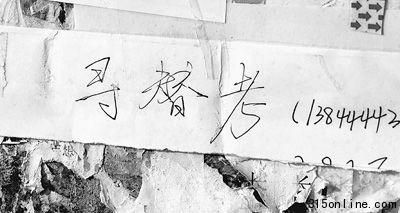 寻替考 (1384443
315online.com